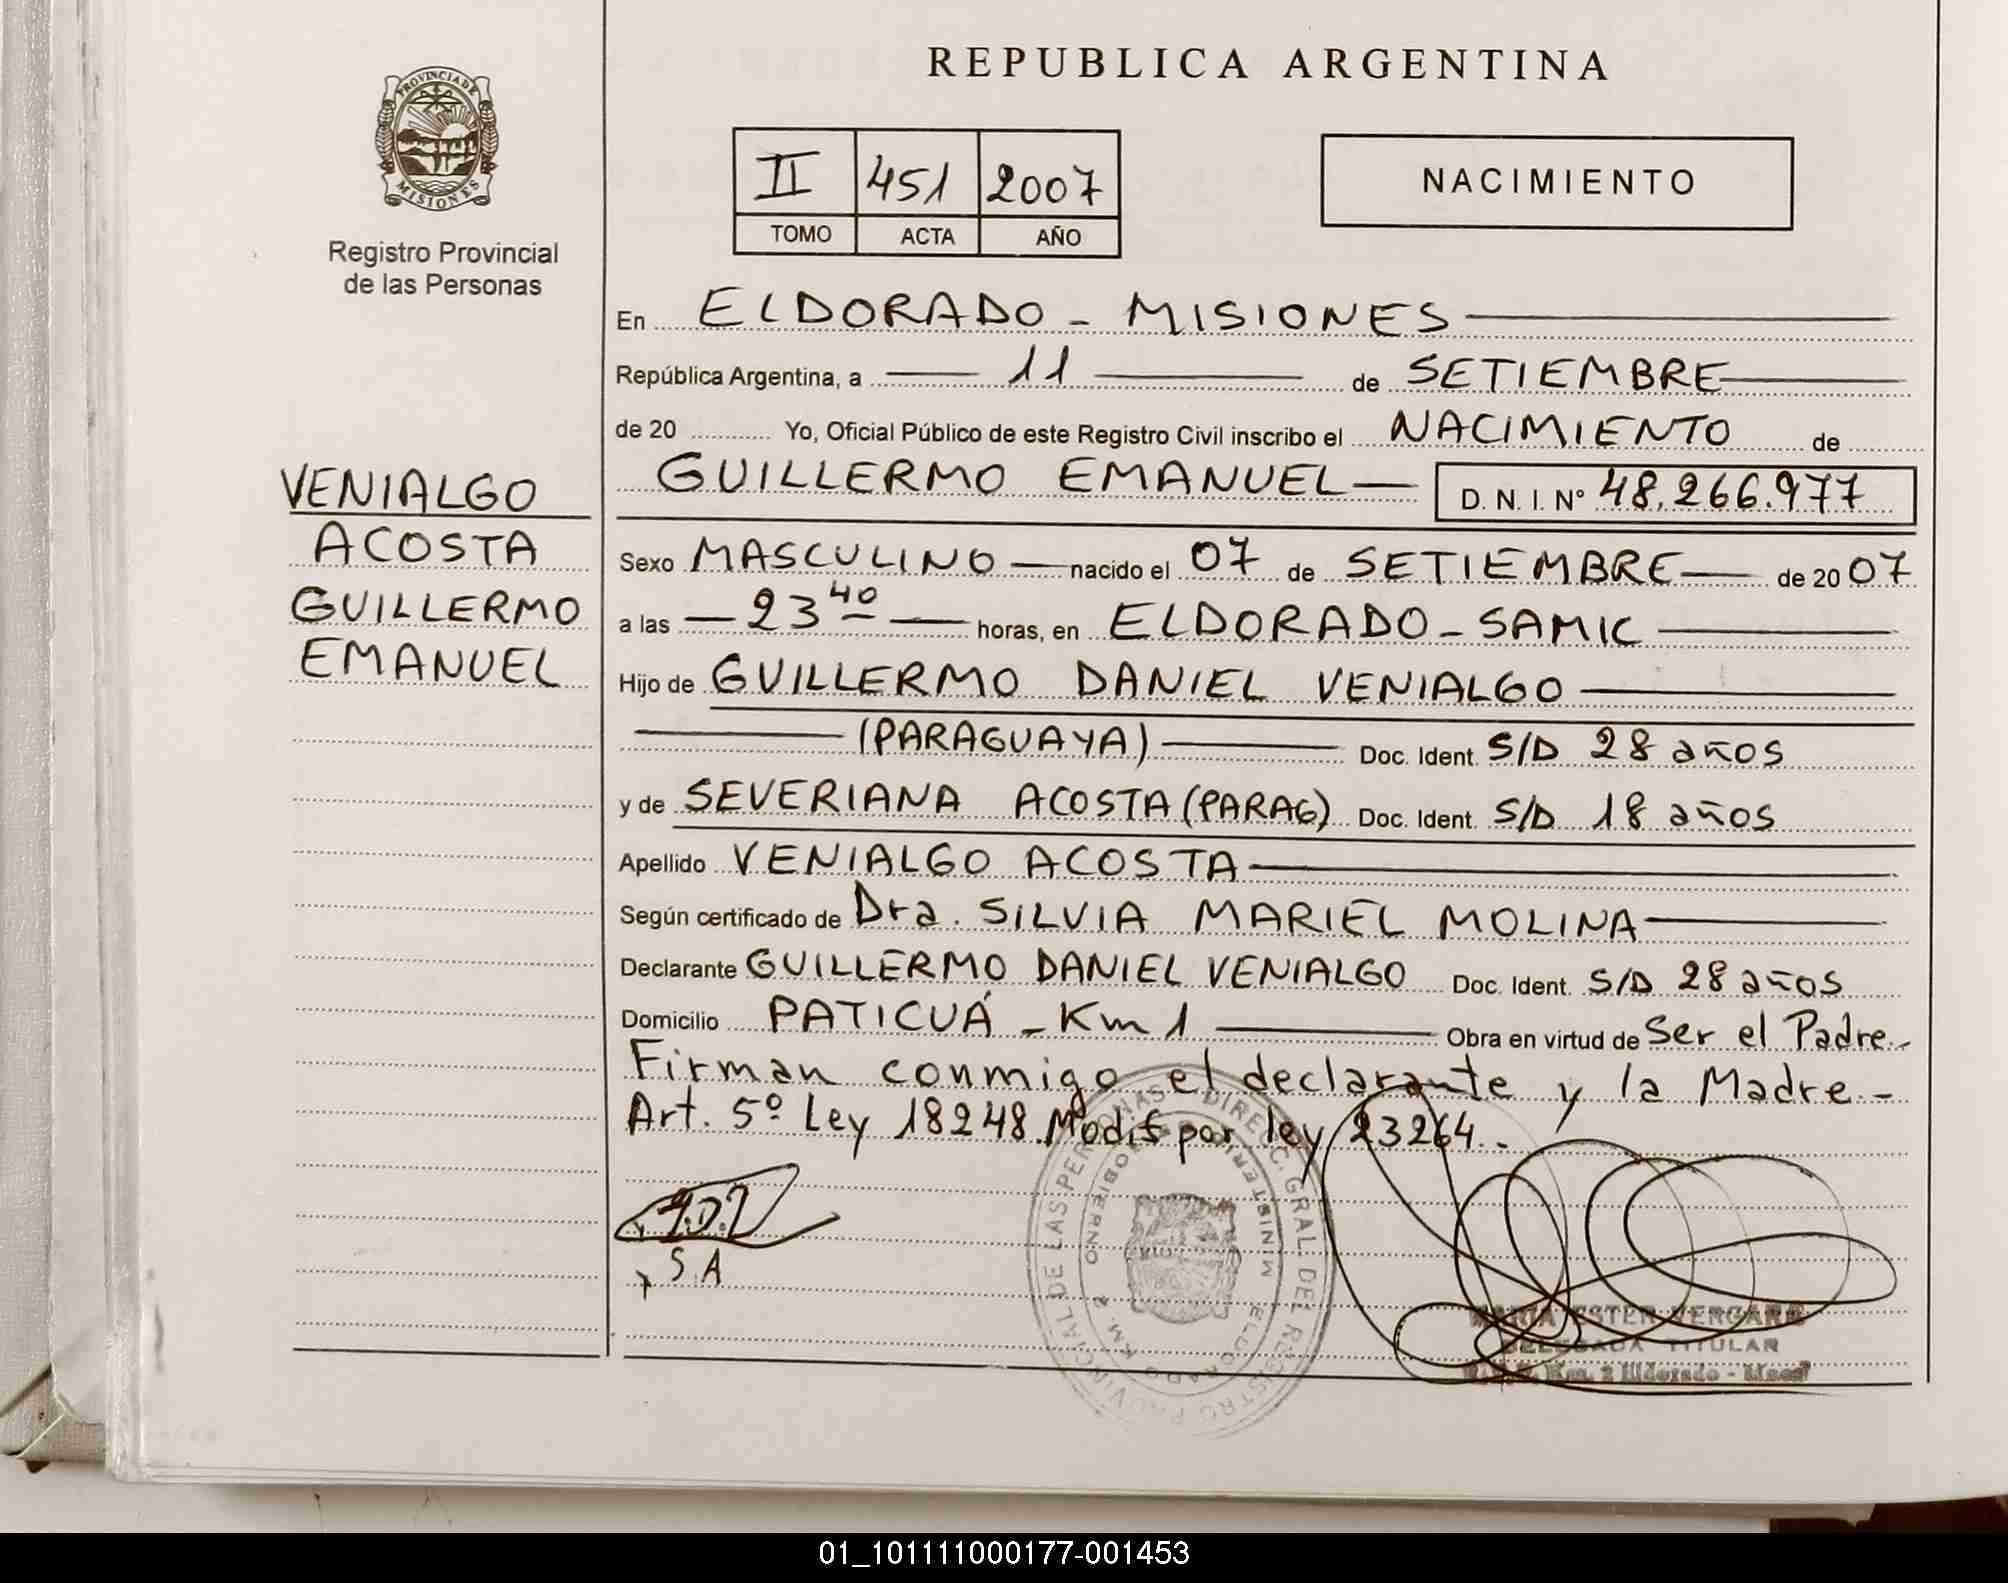 REPUBLICA ARGENTINA
PROVINCIA DE
MISIONES
Registro Provincial
de las Personas
II 451 2007
TOMO ACTA AÑO
NACIMIENTO
En ELDORADO - MISIONES
República Argentina, a 11 de SETIEMBRE
de 20 Yo, Oficial Público de este Registro Civil inscribo el NACIMIENTO de
GUILLERMO EMANUEL D. N. I. Nº 48.266.977
VENIALGO
ACOSTA
GUILLERMO
EMANUEL
Sexo MASCULINO nacido el 07 de SETIEMBRE de 2007
a las 23 40 horas, en ELDORADO - SAMIC
Hijo de GUILLERMO DANIEL VENIALGO
(PARAGUAYA) Doc. Ident. S/D 28 años
y de SEVERIANA ACOSTA (PARAG) Doc. Ident. S/D 18 años
Apellido VENIALGO ACOSTA
Según certificado de Dra. SILVIA MARIEL MOLINA
Declarante GUILLERMO DANIEL VENIALGO Doc. Ident. S/D 28 años
Domicilio PATICUÁ - Km 1 Obra en virtud de Ser el Padre.-
Firman conmigo el declarante y la Madre.-
Art. 5º Ley 18248. Modif por ley 23264.-
S.A
DIRECC. GRAL. DEL REGISTRO PROVINCIAL DE LAS PERSONAS
MINISTERIO GOBIERNO
ELDORADO KM. 2
MARIA ESTER VERGARA
DELEGADA TITULAR
Km. 2 Eldorado - Mnes
01_101111000177-001453